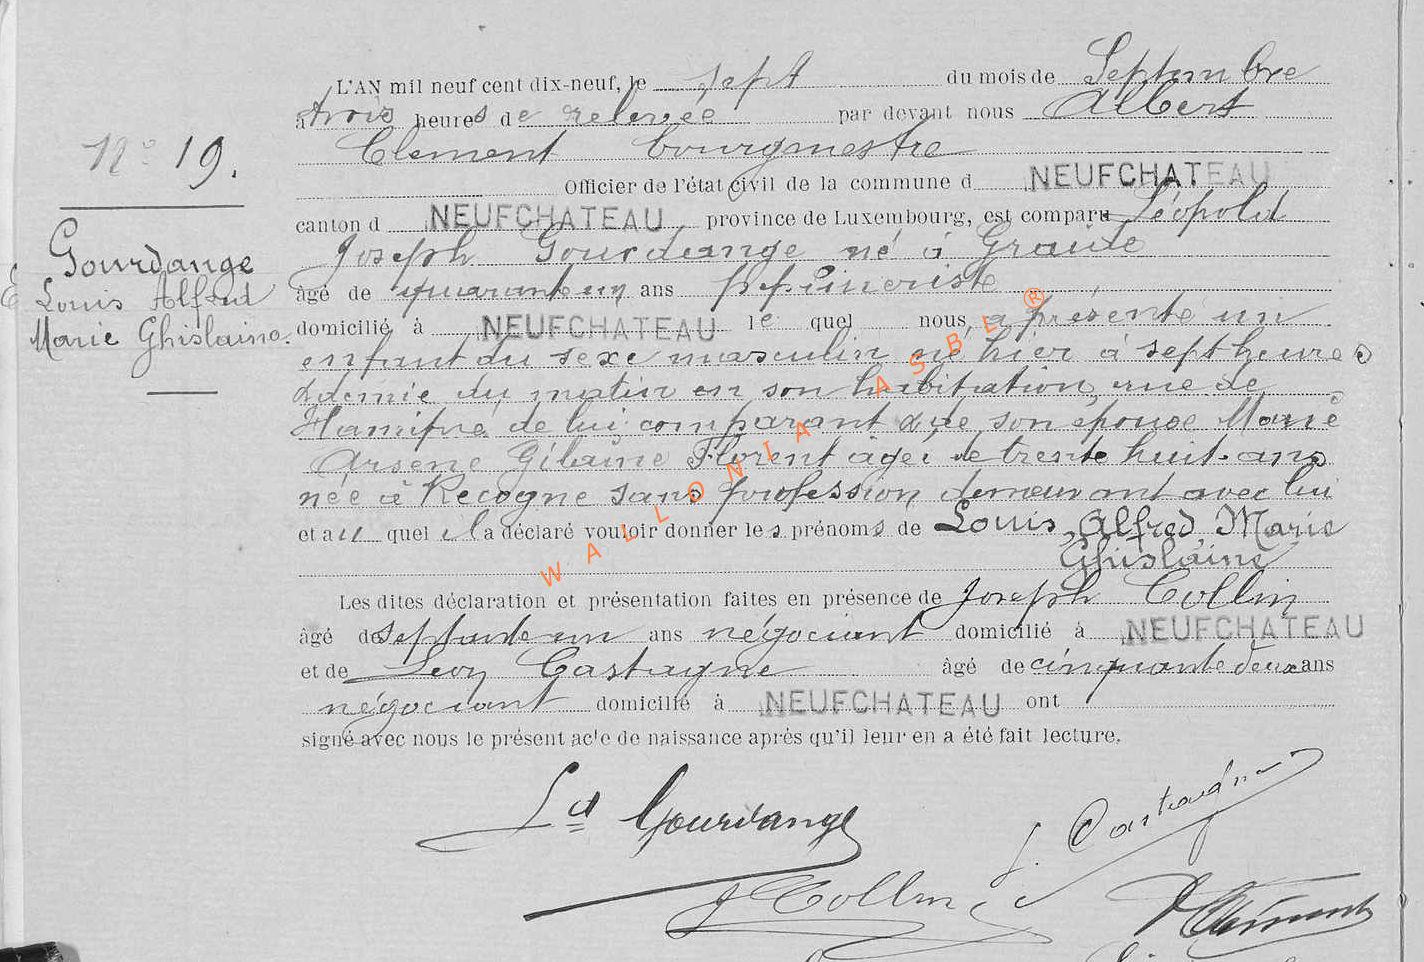 L'AN mil neuf cent dix-neuf, le sept du mois de Septembre
à trois heures de relevée par devant nous Albert
Clement bourgmestre
Officier de l'état civil de la commune d NEUFCHATEAU
canton d NEUFCHATEAU province de Luxembourg, est comparu Léopold
Joseph Gourdange né à Graide
âgé de quarante un ans pépiniériste
domicilié à NEUFCHATEAU le quel nous a présenté un
enfant du sexe masculin né hier à sept heures
& demie du matin en son habitation, rue de
de lui comparant & de son épouse Marie
Arsene Gilaine Florent âgée de trente huit ans
née à Recogne sans profession demeurant avec lui
et au quel il a déclaré vouloir donner les prénoms de Louis, Alfred, Marie
Ghislaine
Les dites déclaration et présentation faites en présence de Joseph Collin
âgé de septante un ans négociant domicilié à NEUFCHATEAU
et de Léon Castagne âgé de cinquante deux ans
négociant domicilié à NEUFCHATEAU ont
signé avec nous le présent acte de naissance après qu'il leur en a été fait lecture.
N° 19.
Gourdange
Louis Alfred
Marie Ghislaine.
Ld Gourdange
J Collin
Castagne
Clément
WALLONIA ASBL ®